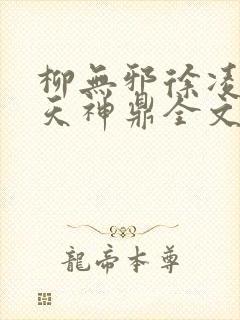 柳無邪徐凌
天神鼎全文
龍帝本尊